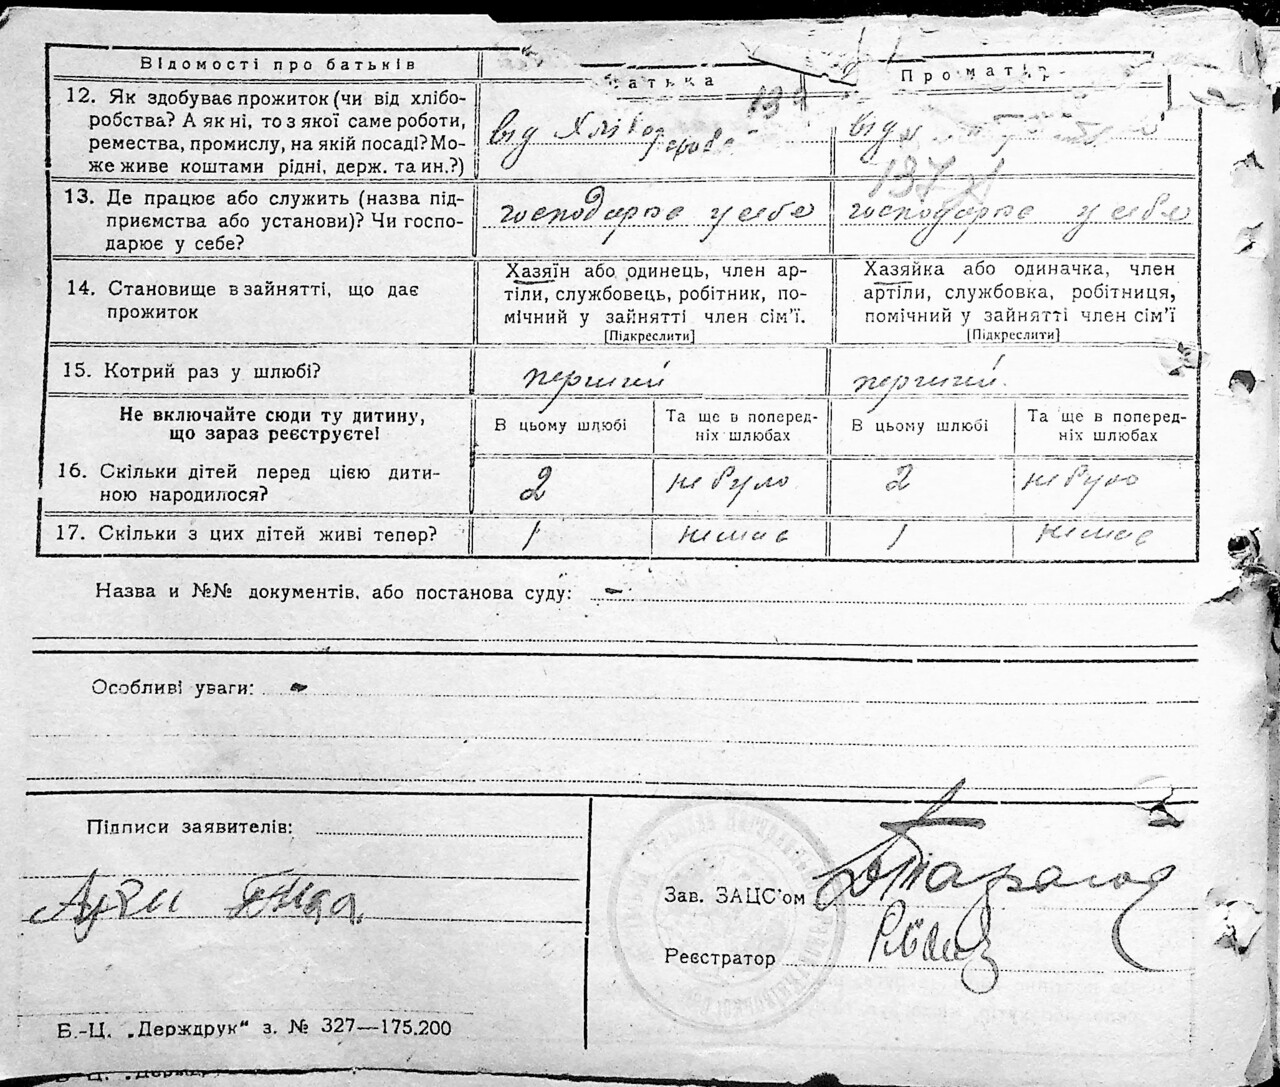 Відомості про батьків
батька
Про матір
12. Як здобуває прожиток (чи від хлібо-
робства? А як ні, то з якої саме роботи,
ремества, промислу, на якій посаді? Мо-
же живе коштами рідні, держ. та ин.?)
від Хлібороб
від
137
13. Де працює або служить (назва під-
приємства або установи)? Чи госпо-
дарює у себе?
господарює у себе
господарює у себе
14. Становище в зайнятті, що дає
прожиток
Хазяїн або одинець, член ар-
тіли, службовець, робітник, по-
мічний у зайнятті член сім'ї.
[Підкреслити]
Хазяйка або одиначка, член
артіли, службовка, робітниця,
помічний у зайнятті член сім'ї
[Підкреслити]
15. Котрий раз у шлюбі?
перший
перший.
Не включайте сюди ту дитину,
що зараз реєструєте!
В цьому шлюбі
Та ще в поперед-
ніх шлюбах
В цьому шлюбі
Та ще в поперед-
ніх шлюбах
16. Скільки дітей перед цією дити-
ною народилося?
2
не було
2
не було
17. Скільки з цих дітей живі тепер?
1
немає
1
немає
Назва и №№ документів, або постанова суду: –
Особливі уваги: –
Підписи заявителів:
Зав. ЗАЦС'ом
Реєстратор
Б.-Ц. „Держдрук“ з. № 327—175.200